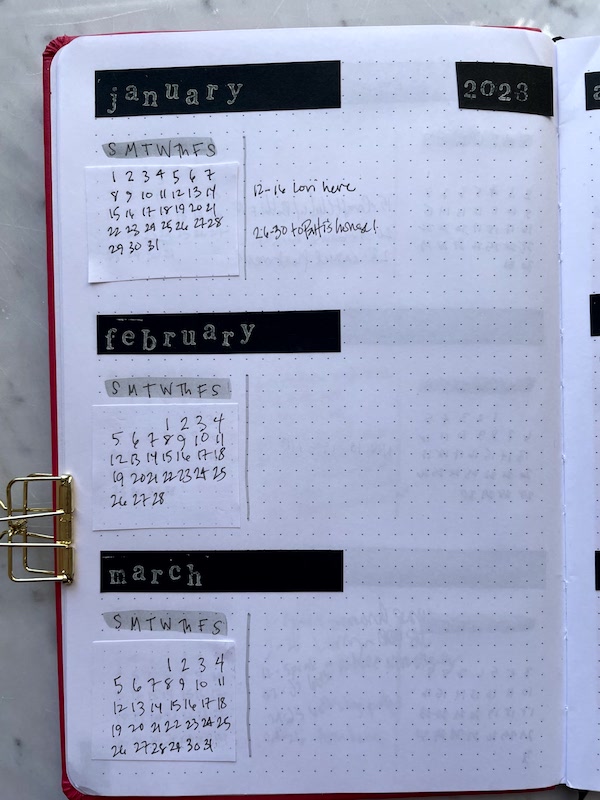 january
2023
S M T W Th F S
1 2 3 4 5 6 7
8 9 10 11 12 13 14
15 16 17 18 19 20 21
22 23 24 25 26 27 28
29 30 31
12-16 Lori here
26-30 to Patti's house!
february
S M T W Th F S
1 2 3 4
5 6 7 8 9 10 11
12 13 14 15 16 17 18
19 20 21 22 23 24 25
26 27 28
march
S M T W Th F S
1 2 3 4
5 6 7 8 9 10 11
12 13 14 15 16 17 18
19 20 21 22 23 24 25
26 27 28 29 30 31